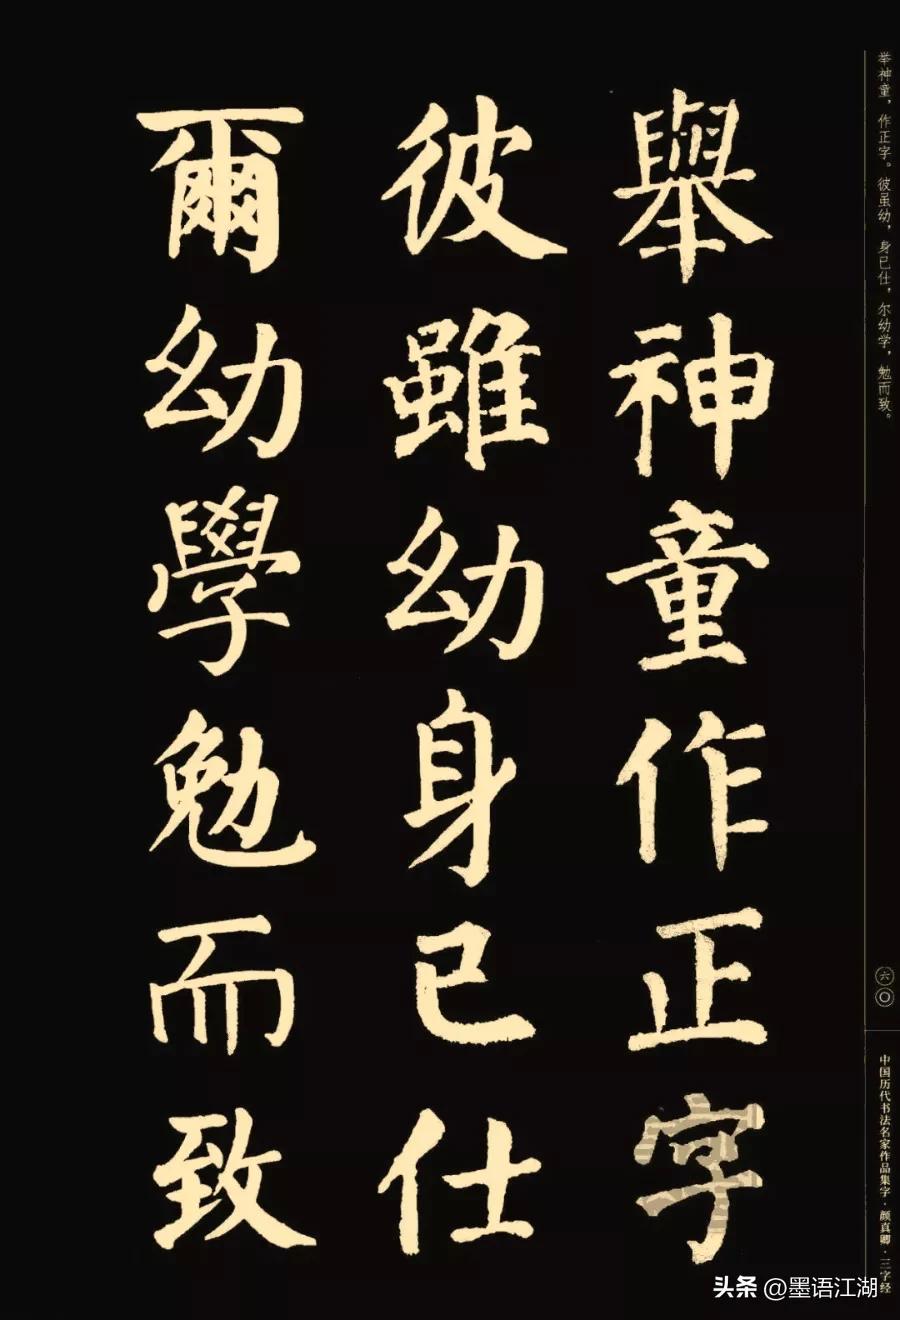 舉神童作正字
彼雖幼身已仕
爾幼學勉而致
举神童，作正字。彼虽幼，身已仕，尔幼学，勉而致。
六〇
中国历代书法名家作品集字·颜真卿·三字经
头条 @墨语江湖